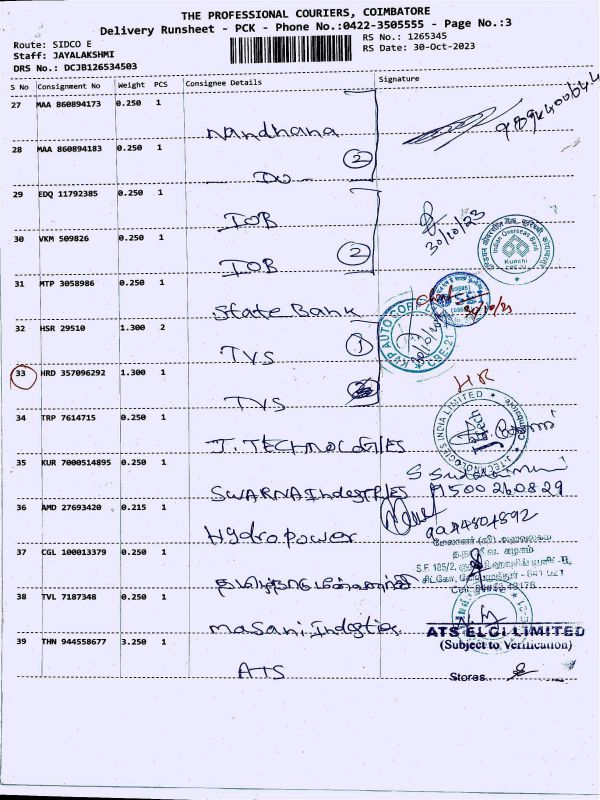 THE PROFESSIONAL COURIERS, COIMBATORE
Delivery Runsheet - PCK - Phone No.:0422-3505555 - Page No.:3
Route: SIDCO E
RS No.: 1265345
Staff: JAYALAKSHMI
RS Date: 30-Oct-2023
DRS No.: DCJB126534503
S No Consignment No Weight PCS Consignee Details Signature
27 MAA 860894173 0.250 1
Nandhana
28 MAA 860894183 0.250 1
2
Do
29 EDQ 11792385 0.250 1
IOB
30/10/23
30 VKM 509826 0.250 1
2
IOB
Indian Overseas Bank
Kurichi
31 MTP 3058986 0.250 1
State Bank
30/10/23
32 HSR 29510 1.300 2
1
TVS
33 HRD 357096292 1.300 1
TVS
HR
34 TRP 7614715 0.250 1
J. TECHNOLOGIES
35 KUR 7000514895 0.250 1
SWARNA Industries
9500260829
36 AMD 27693420 0.215 1
Hydropower
9944804892
37 CGL 100013379 0.250 1
S.F. 185/2,
38 TVL 7187348 0.250 1
Masani Industies
ATS ELGI LIMITED
39 THN 944558677 3.250 1
(Subject to Verification)
ATS
Stores